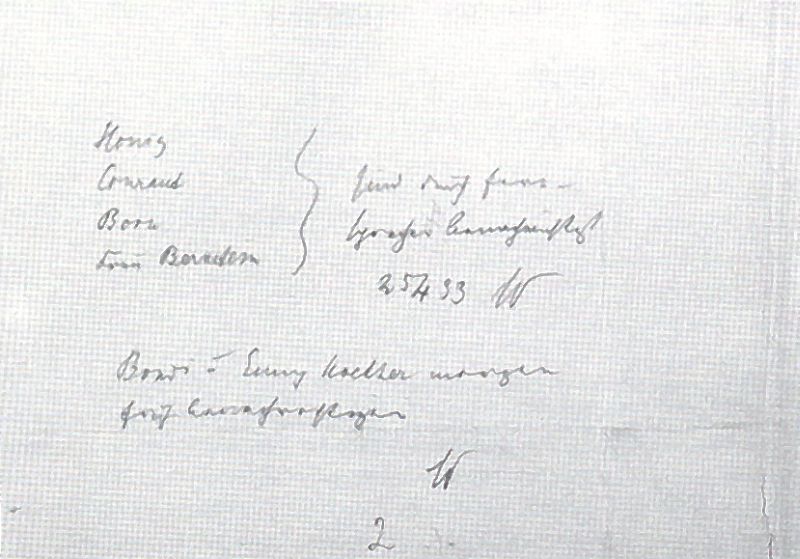 Honig
Conrad
Born
Frau Berndsen
sind durch Fern-
sprecher benachrichtigt
25433 W
Bondi u Emmy Koether morgen
früh benachrichtigen
W
2